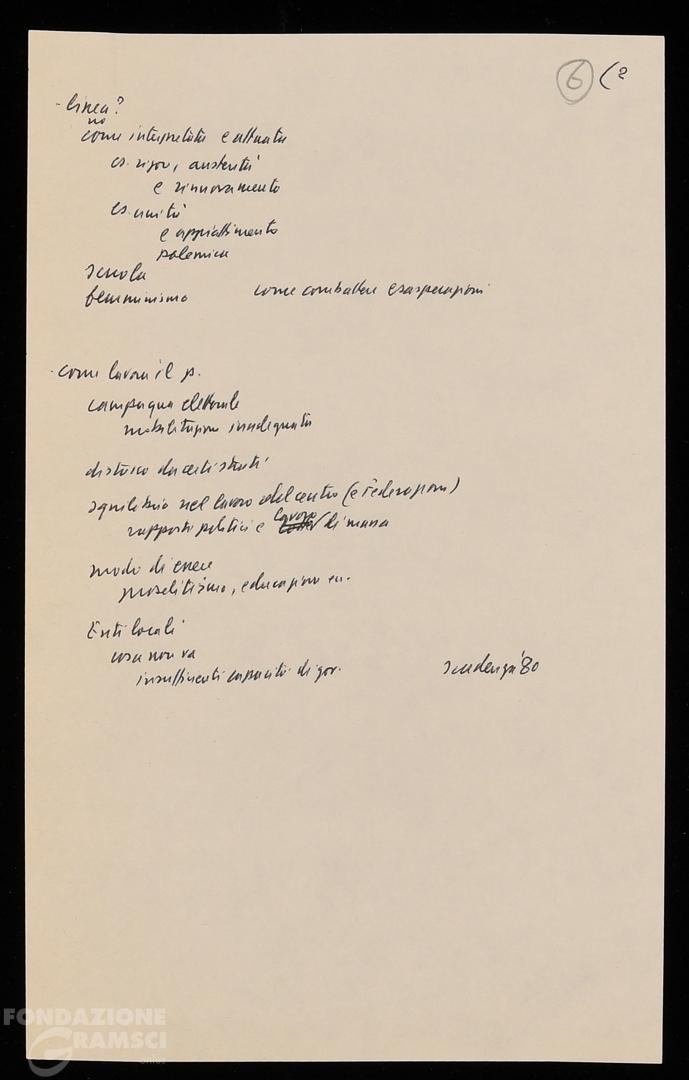 6 (2
- linea?
no
come interpretata e attuata
es. rigore, austerità
e rinnovamento
es. unità
e appiattimento
polemica
scuola
femminismo come combattere esasperazioni
- come lavora il p.
campagna elettorale
mobilitazione inadeguata
distacco da certi strati
squilibrio nel lavoro del centro (e Federazioni)
rapporti politici e lavoro di massa
modo di essere
proselitismo, educazione
Enti locali
cosa non va
insufficienti capacità di gov. scadenza '80
FONDAZIONE
GRAMSCI
onlus